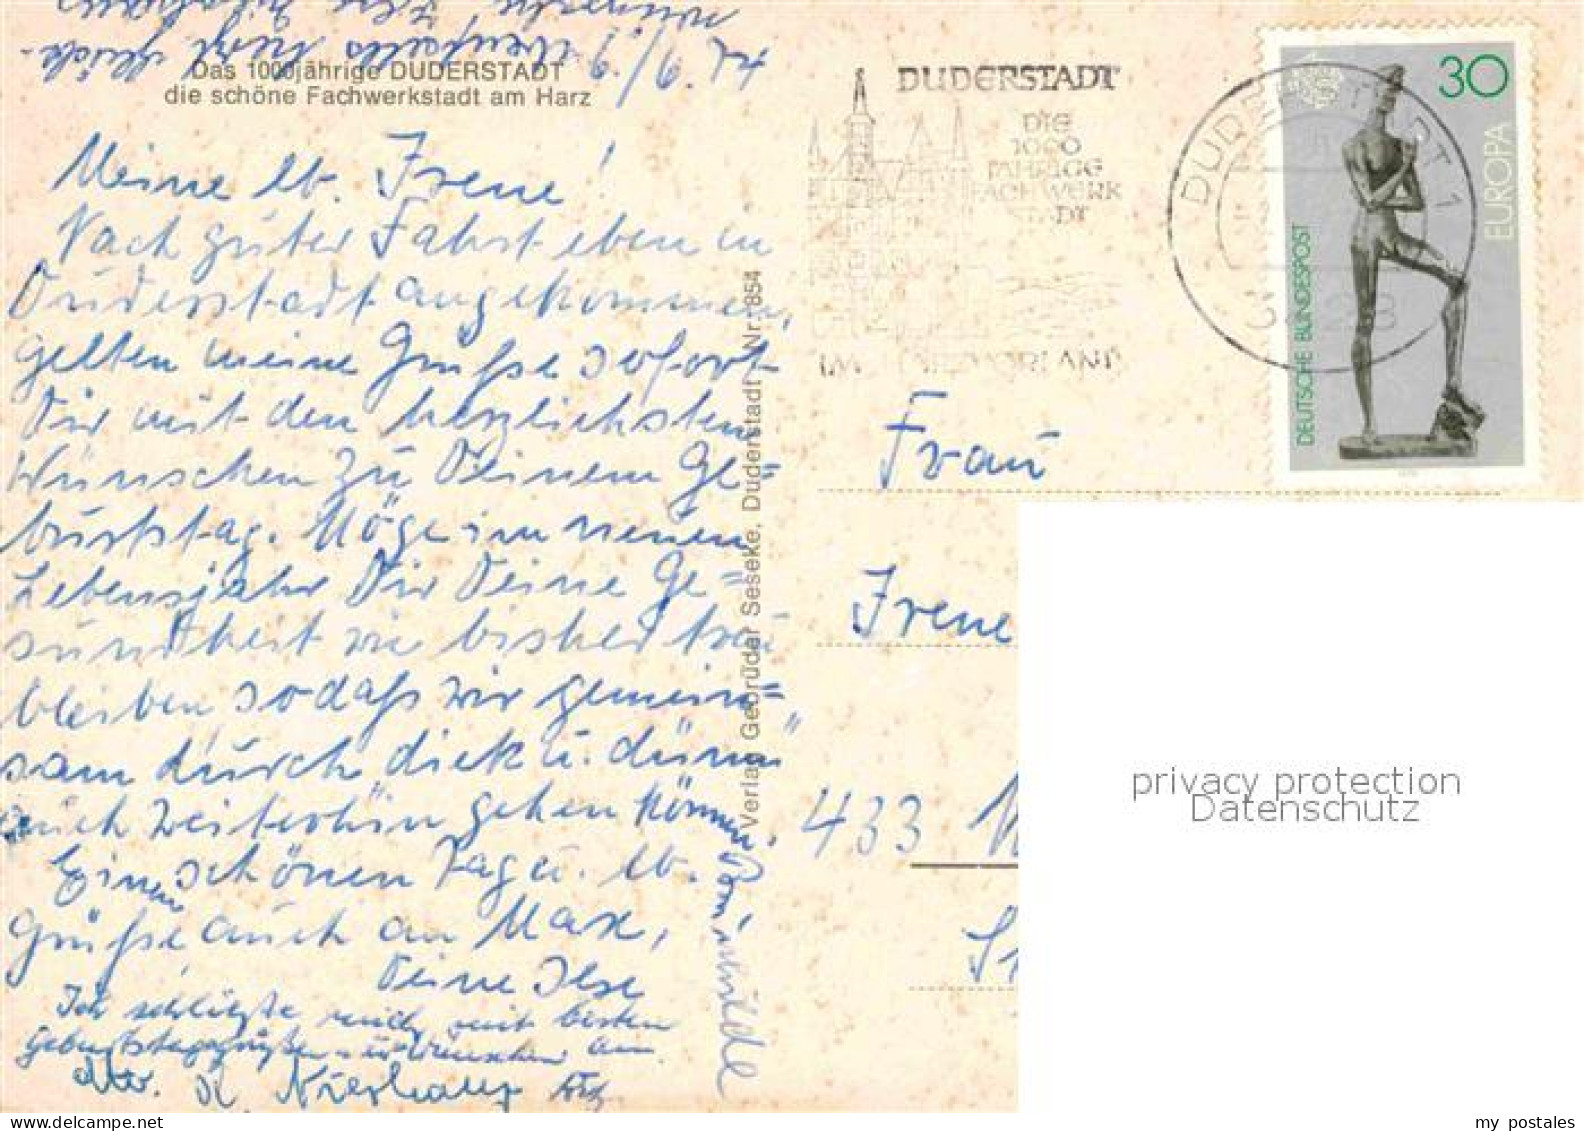 Das 1000jährige DUDERSTADT
die schöne Fachwerkstadt am Harz
Meine lb. Irene!
Nach guter Fahrt eben in
Duderstadt angekommen,
gelten meine Grüße sofort
Dir mit den herzlichsten
Wünschen zu Deinem Ge=
burtstag. Möge im neuen
Lebensjahr Dir Deine Ge=
sundheit wie bisher treu
bleiben sodaß wir gemein=
sam durch dick u. dünn
auch weiterhin gehen können.
Einen schönen Tag u. lb.
Grüße auch an Max,
Deine Ilse
Ich schließe mich mit besten
Geburtstagsgrüßen u. Wünschen an
Verlag Gebrüder Seseke, Duderstadt Nr. 854
DUDERSTADT
DIE
1000
JÄHRIGE
FACHWERK
STADT
IM
DUDERSTADT 1
30
EUROPA
DEUTSCHE BUNDESPOST
Frau
Irene
433
privacy protection
Datenschutz
my postales